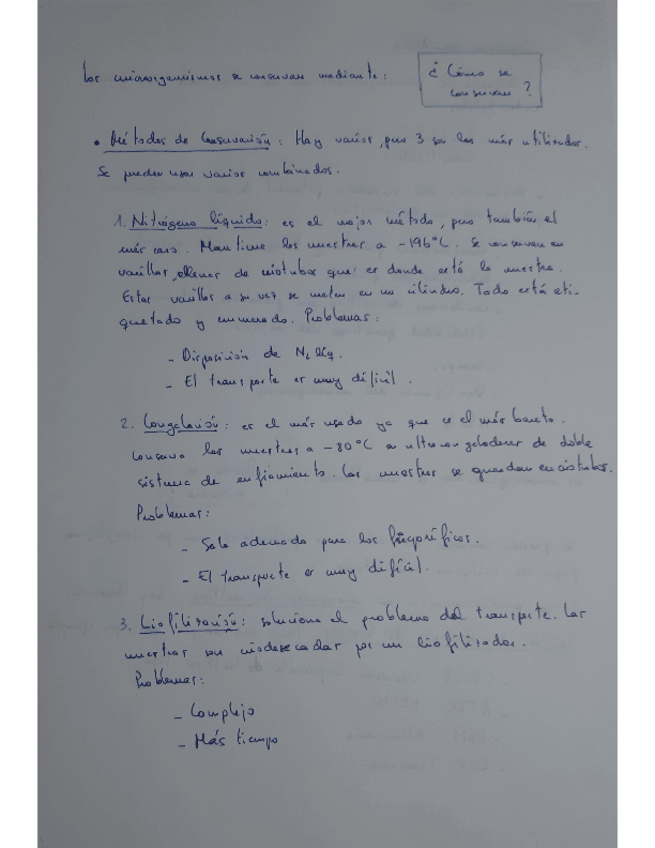 Los microorganismos se conservan mediante:
¿Cómo se
conservan?
• Métodos de Conservación: Hay varios, pero 3 son los más utilizados.
Se pueden usar varios combinados.
1. Nitrógeno líquido: es el mejor método, pero también el
más caro. Mantiene las muestras a -196°C. Se conservan en
varillas, de criotubos que es donde está la muestra.
Estas varillas a su vez se meten en un cilindro. Todo está eti-
quetado y enumerado. Problemas:
- Disposición de N₂ líq.
- El transporte es muy difícil.
2. Congelación: es el más usado ya que es el más barato.
Conserva las muestras a -80°C en ultracongeladores de doble
sistema de enfriamiento. Las muestras se guardan en criotubos.
Problemas:
- Sala adecuada para los frigoríficos.
- El transporte es muy difícil.
3. Liofilización: soluciona el problema del transporte. Las
muestras son criodesecadas por un liofilizador.
Problemas:
- Complejo
- Más tiempo